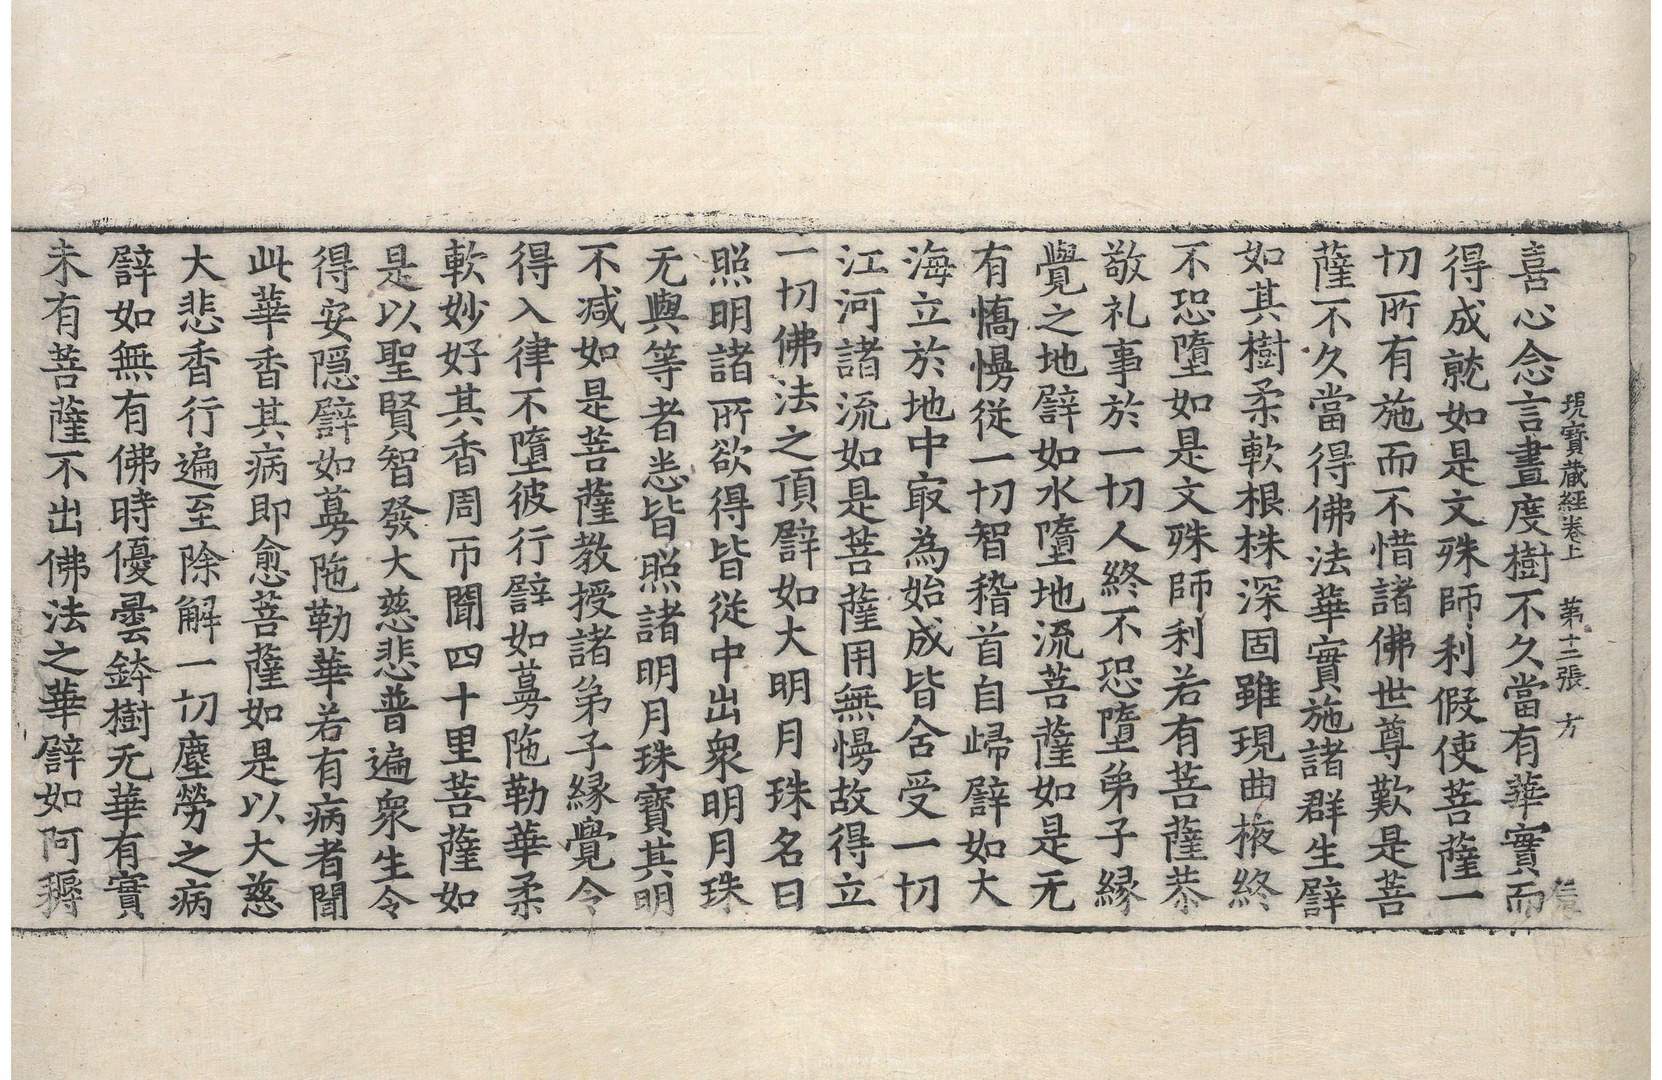 現寶藏經卷上 第十二張 方
喜心念言晝度樹不久當有華實而
得成就如是文殊師利假使菩薩一
切所有施而不惜諸佛世尊歎是菩
薩不久當得佛法華實施諸群生譬
如其樹柔軟根株深固雖現曲掖終
不恐墮如是文殊師利若有菩薩恭
敬礼事於一切人終不恐墮弟子緣
覺之地譬如水墮地流菩薩如是无
有憍慢從一切智稽首自歸譬如大
海立於地中㝡為始成皆舍受一切
江河諸流如是菩薩用無慢故得立
一切佛法之頂譬如大明月珠名曰
照明諸所欲得皆從中出衆明月珠
无與等者悉皆照諸明月珠寶其明
不減如是菩薩教授諸弟子緣覺令
得入律不墮彼行譬如蒭陁勒華柔
軟妙好其香周帀聞四十里菩薩如
是以聖賢智發大慈悲普遍衆生令
得安隱譬如蒭陁勒華若有病者聞
此華香其病即愈菩薩如是以大慈
大悲香行遍至除解一切塵勞之病
譬如無有佛時優曇鉢樹无華有實
未有菩薩不出佛法之華譬如阿耨